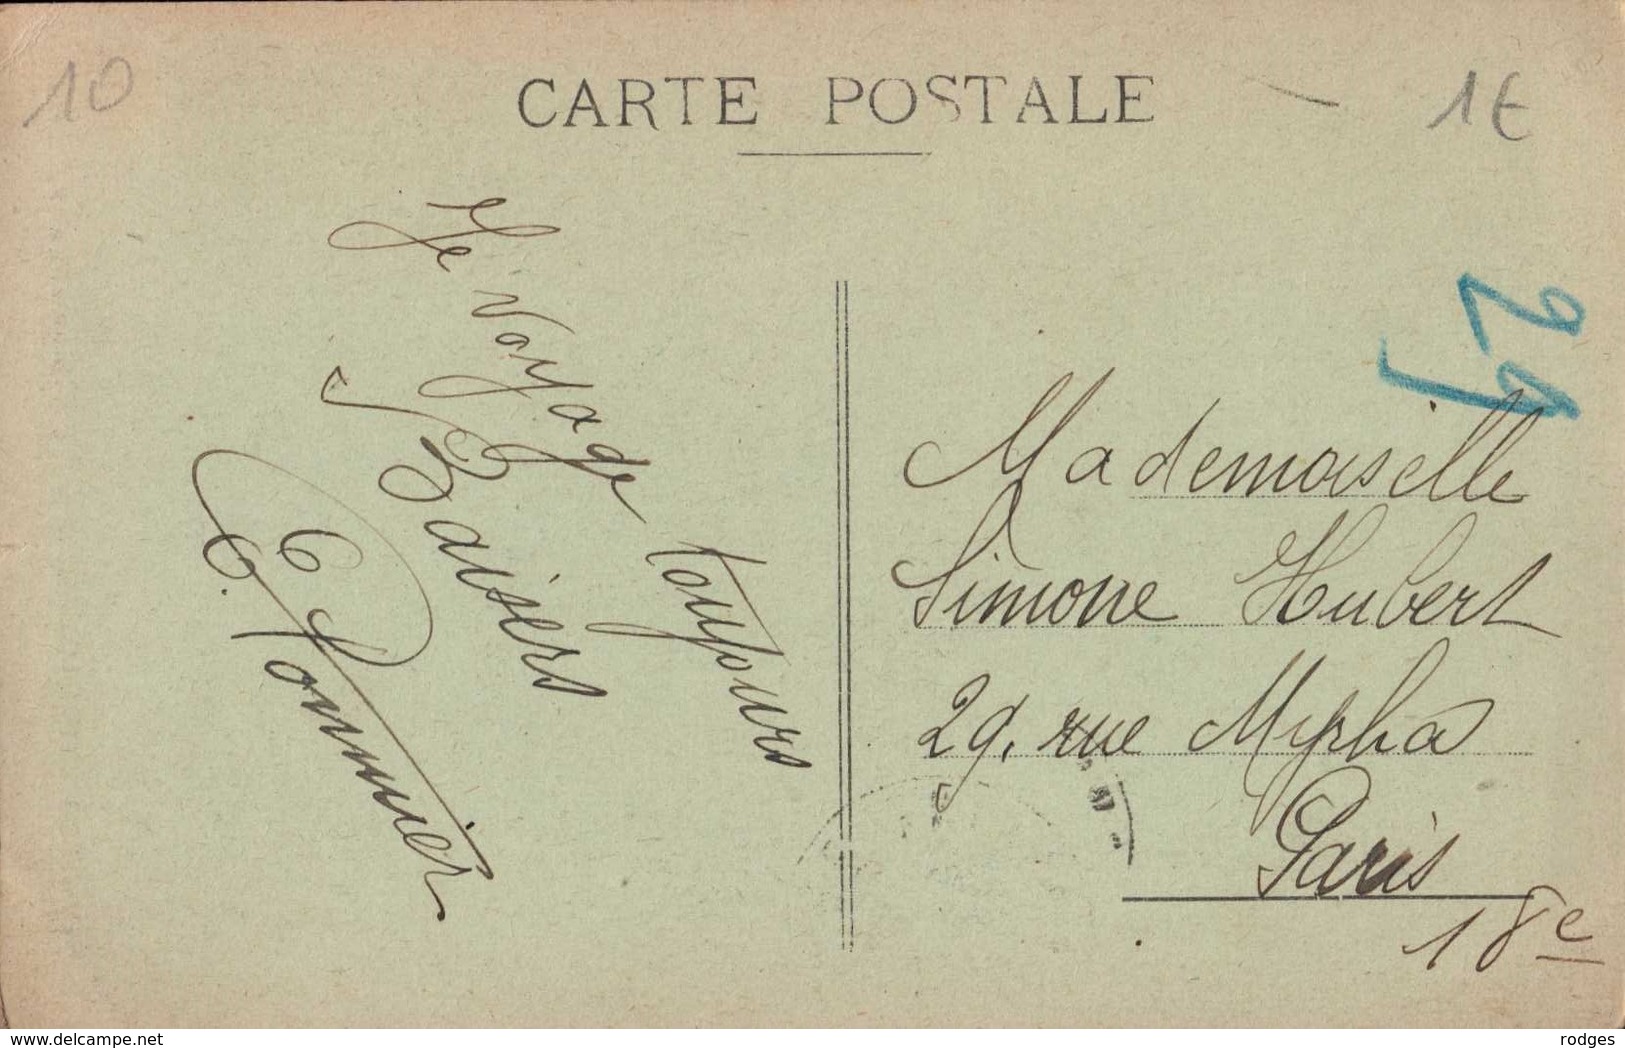 10
CARTE POSTALE
1€
Je voyage toujours
Baisers
E. Pommier
21
Mademoiselle
Simone Hubert
29, rue Myrha
Paris
18e
delcampe.net
rodges